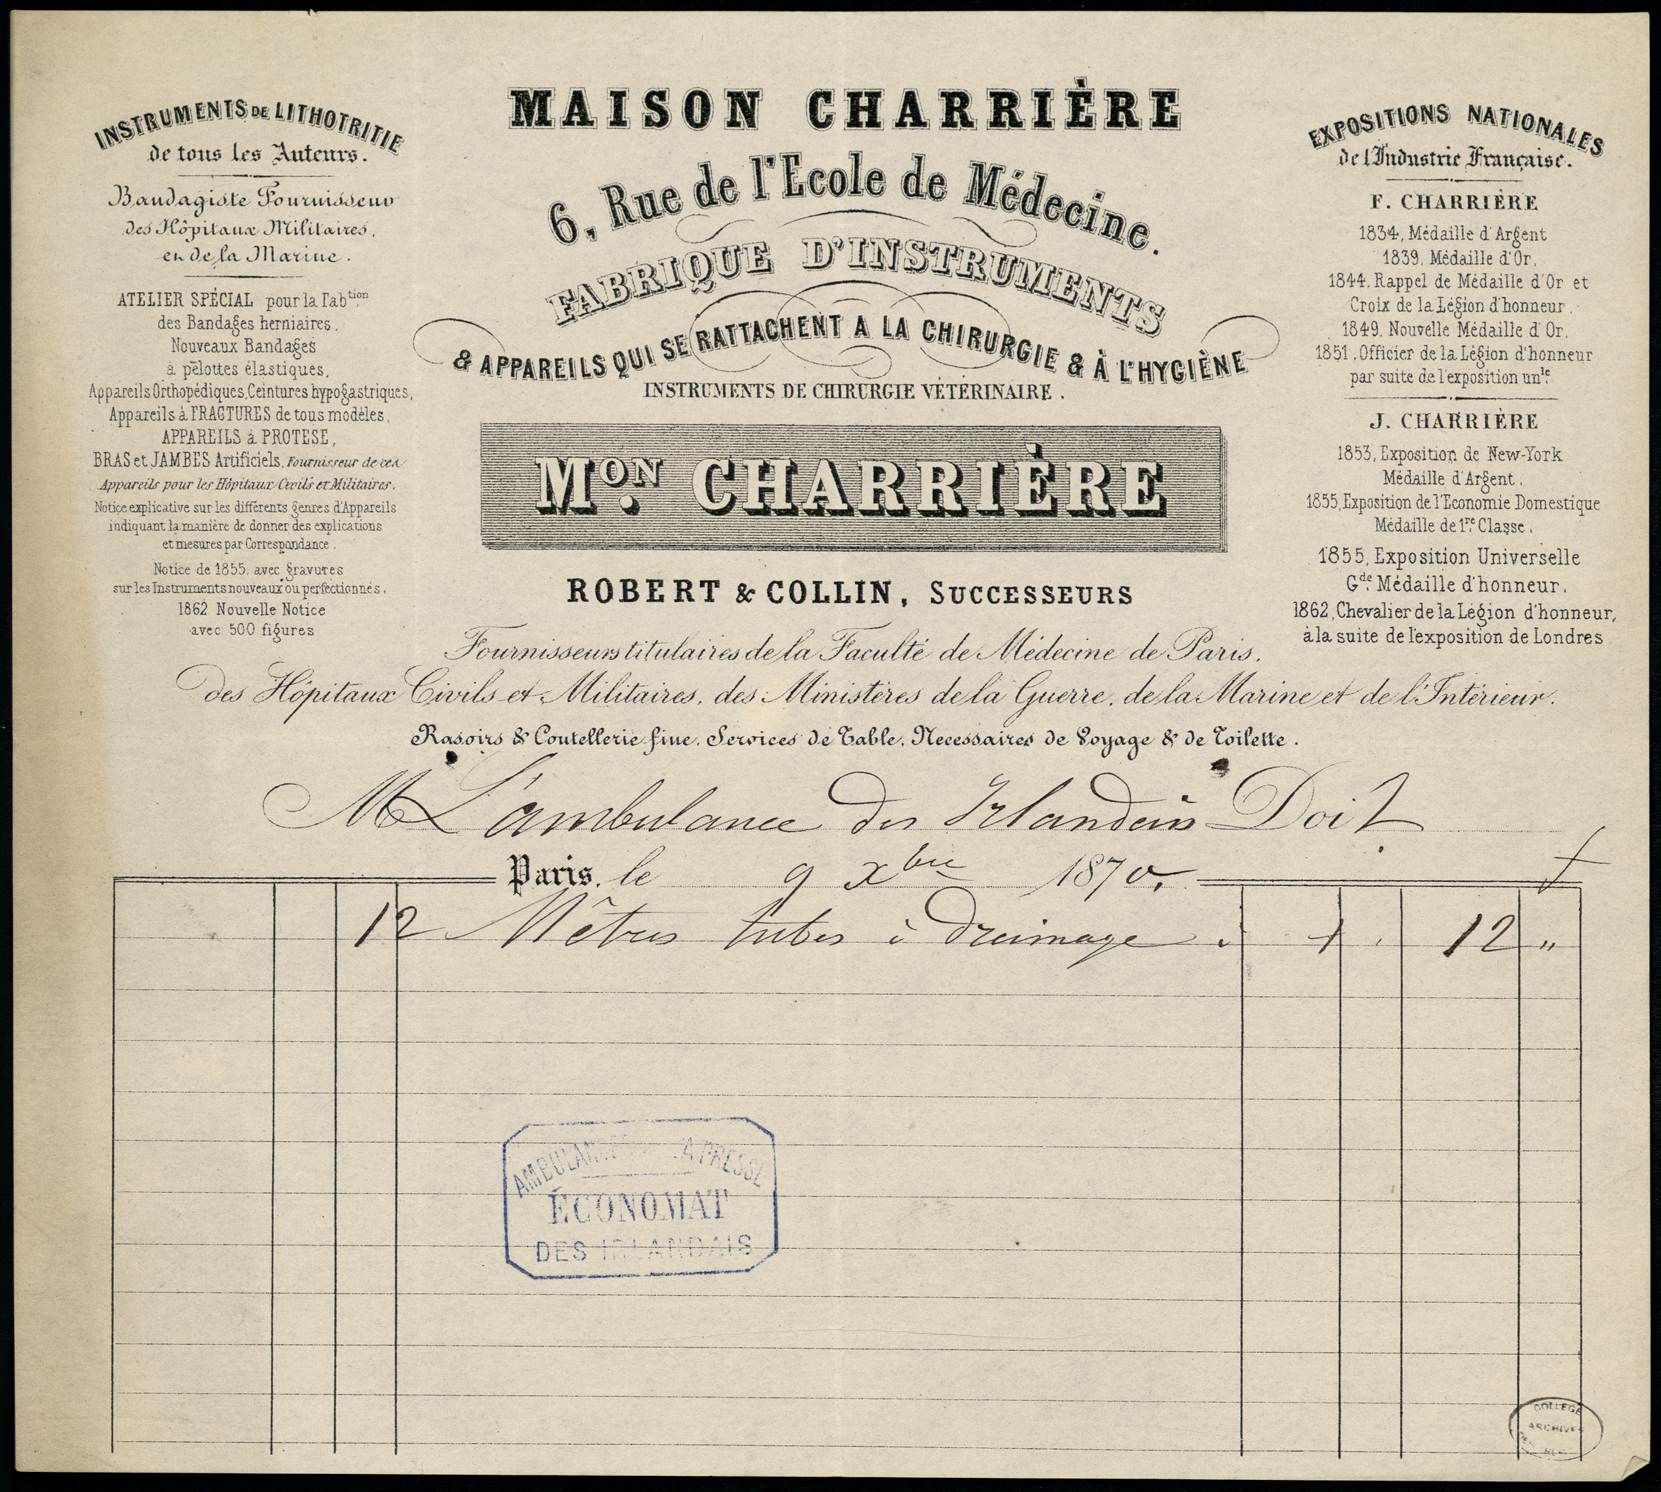 INSTRUMENTS DE LITHOTRITIE
de tous les Auteurs.
Bandagiste Fournisseur
des Hôpitaux Militaires,
et de la Marine.
ATELIER SPÉCIAL pour la Fabtion
des Bandages herniaires.
Nouveaux Bandages
à pelottes élastiques,
Appareils Orthopédiques, Ceintures hypogastriques,
Appareils à FRACTURES de tous modèles,
APPAREILS à PROTESE,
BRAS et JAMBES Artificiels, Fournisseur de ces
Appareils pour les Hôpitaux Civils et Militaires.
Notice explicative sur les différents genres d'Appareils
indiquant la manière de donner des explications
et mesures par Correspondance.
Notice de 1855. avec gravures
sur les Instruments nouveaux ou perfectionnés.
1862 Nouvelle Notice
avec 500 figures
MAISON CHARRIÈRE
6, Rue de l'Ecole de Médecine.
FABRIQUE D'INSTRUMENTS
& APPAREILS QUI SE RATTACHENT A LA CHIRURGIE & À L'HYGIÈNE
INSTRUMENTS DE CHIRURGIE VÉTÉRINAIRE.
MON. CHARRIÈRE
ROBERT & COLLIN, SUCCESSEURS
EXPOSITIONS NATIONALES
de l'Industrie Française.
F. CHARRIÈRE
1834, Médaille d'Argent
1839, Médaille d'Or,
1844, Rappel de Médaille d'Or et
Croix de la Légion d'honneur.
1849. Nouvelle Médaille d'Or,
1851, Officier de la Légion d'honneur
par suite de l'exposition unle.
J. CHARRIÈRE
1853, Exposition de New-York
Médaille d'Argent.
1855, Exposition de l'Economie Domestique
Médaille de 1re Classe.
1855, Exposition Universelle
Gde. Médaille d'honneur.
1862, Chevalier de la Légion d'honneur,
à la suite de l'exposition de Londres
Fournisseurs titulaires de la Faculté de Médecine de Paris,
des Hôpitaux Civils et Militaires, des Ministères de la Guerre, de la Marine et de l'Intérieur.
Rasoirs & Coutellerie fine, Services de Table, Necessaires de Voyage & de Toilette.
M L'ambulance des Irlandais Doit
Paris, le 9 Xbre 1870.
12 Mêtres tubes à drainage 1 . 12 "
AMBULANCE LA PRESSE
ÉCONOMAT
DES IRLANDAIS
COLLEGE
ARCHIVES